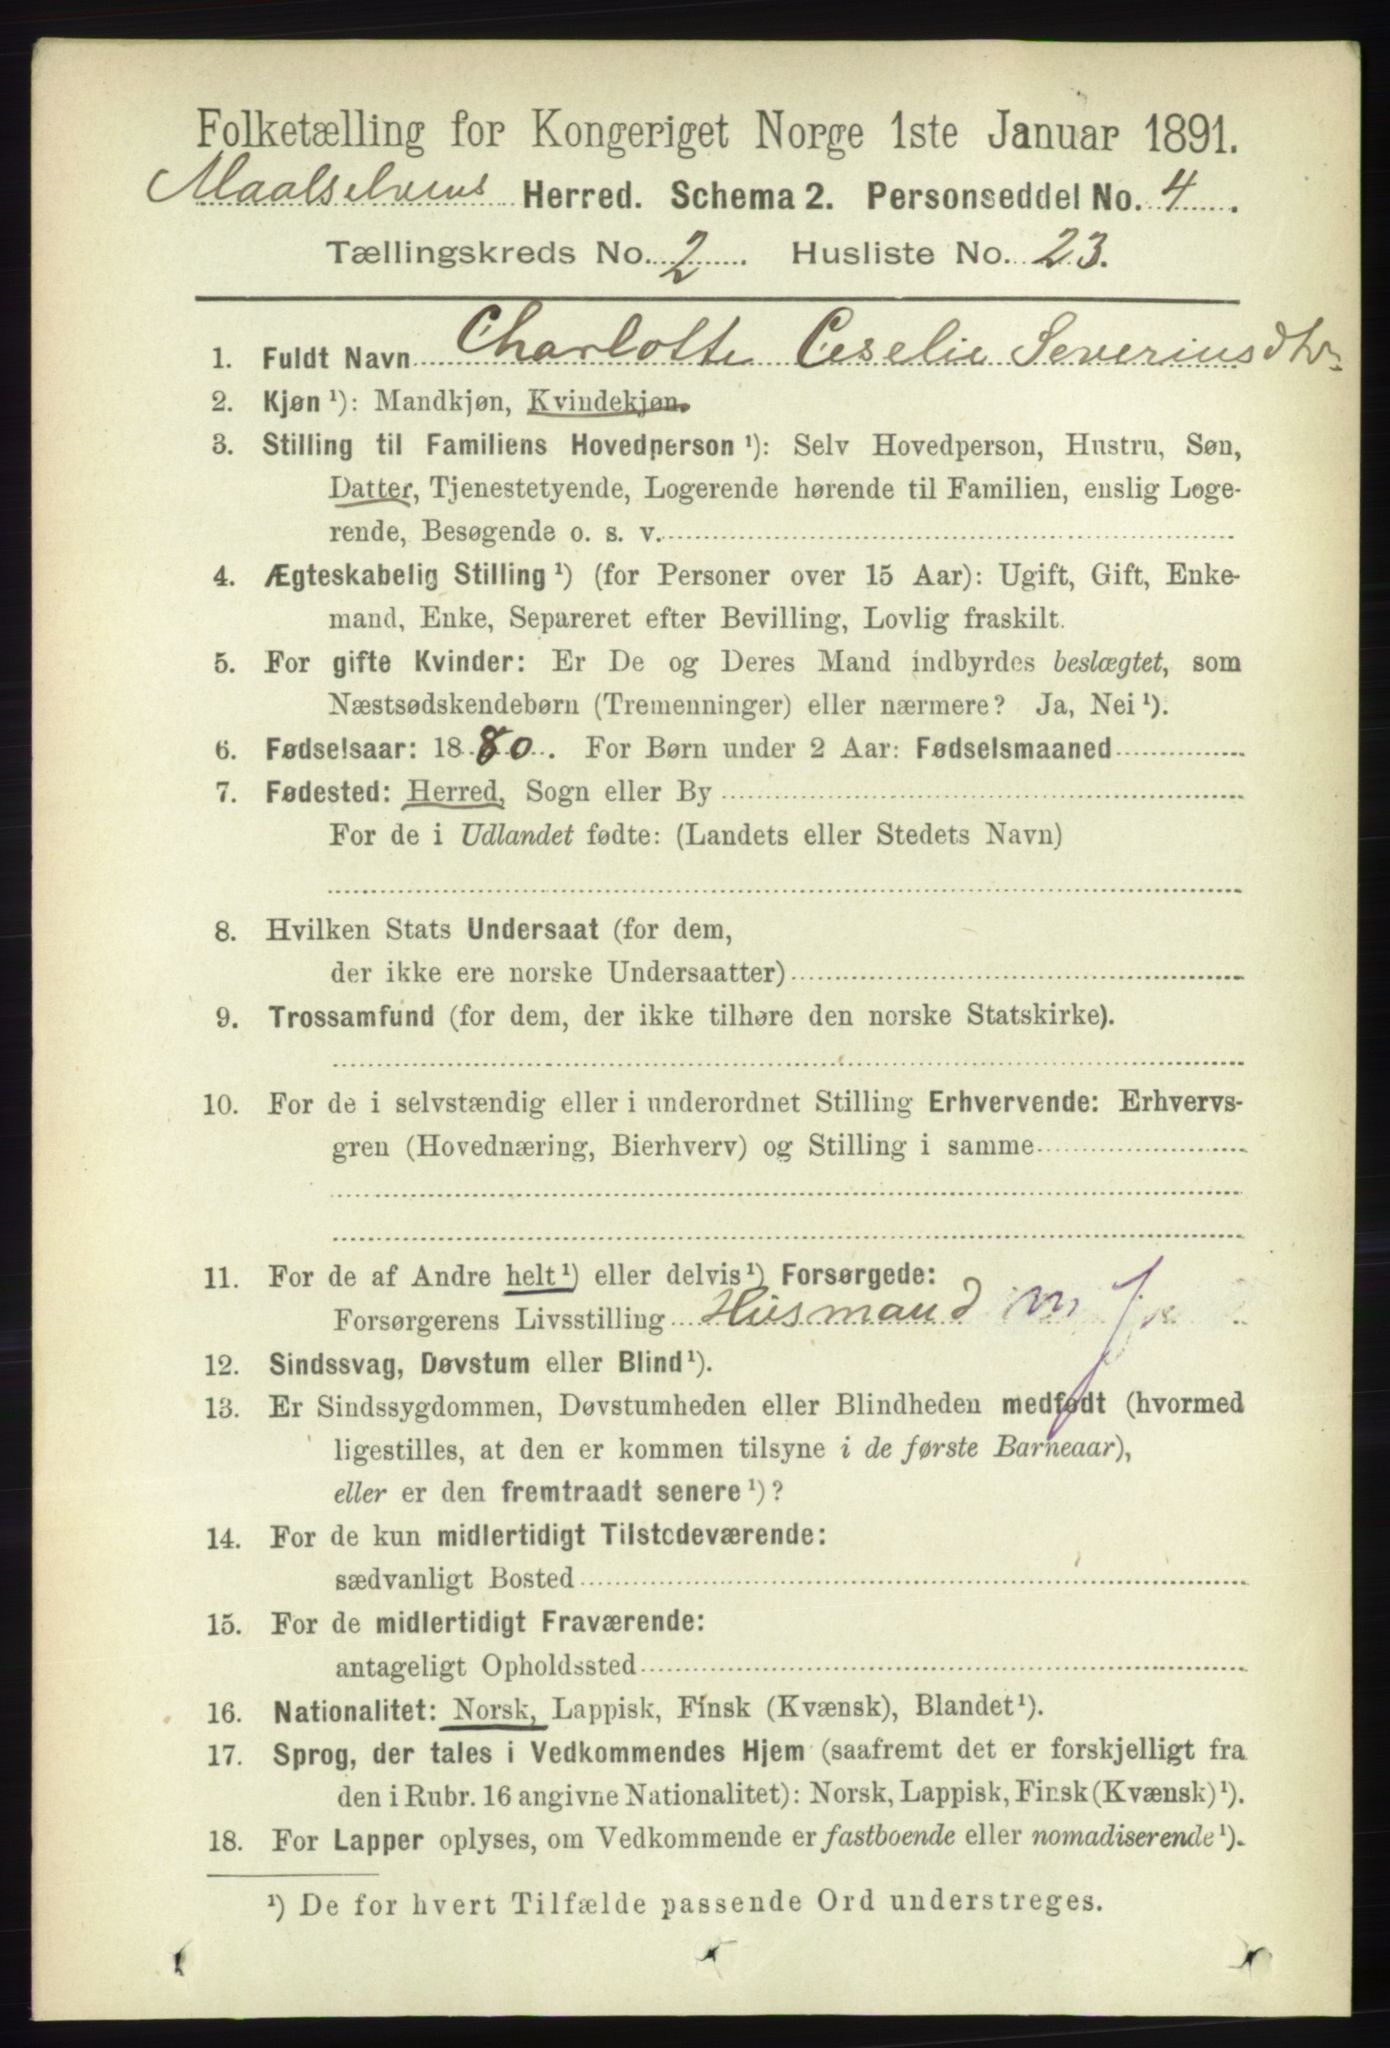 Folketælling for Kongeriget Norge 1ste Januar 1891.
Maalselvens Herred. Schema 2. Personseddel No. 4.
Tællingskreds No. 2. Husliste No. 23.
1. Fuldt Navn Charlotte Ceselie Severinsdtr
2. Kjøn ¹): Mandkjøn, Kvindekjøn.
3. Stilling til Familiens Hovedperson ¹): Selv Hovedperson, Hustru, Søn,
Datter, Tjenestetyende, Logerende hørende til Familien, enslig Loge-
rende, Besøgende o. s. v.
4. Ægteskabelig Stilling ¹) (for Personer over 15 Aar): Ugift, Gift, Enke-
mand, Enke, Separeret efter Bevilling, Lovlig fraskilt.
5. For gifte Kvinder: Er De og Deres Mand indbyrdes beslægtet, som
Næstsødskendebørn (Tremenninger) eller nærmere? Ja, Nei ¹).
6. Fødselsaar: 1880. For Børn under 2 Aar: Fødselsmaaned
7. Fødested: Herred, Sogn eller By
For de i Udlandet fødte: (Landets eller Stedets Navn)
8. Hvilken Stats Undersaat (for dem,
der ikke ere norske Undersaatter)
9. Trossamfund (for dem, der ikke tilhøre den norske Statskirke).
10. For de i selvstændig eller i underordnet Stilling Erhvervende: Erhvervs-
gren (Hovednæring, Bierhverv) og Stilling i samme
11. For de af Andre helt ¹) eller delvis ¹) Forsørgede:
Forsørgerens Livsstilling Husmand m J
12. Sindssvag, Døvstum eller Blind ¹).
13. Er Sindssygdommen, Døvstumheden eller Blindheden medfødt (hvormed
ligestilles, at den er kommen tilsyne i de første Barneaar),
eller er den fremtraadt senere ¹)?
14. For de kun midlertidigt Tilstedeværende:
sædvanligt Bosted
15. For de midlertidigt Fraværende:
antageligt Opholdssted
16. Nationalitet: Norsk, Lappisk, Finsk (Kvænsk), Blandet ¹).
17. Sprog, der tales i Vedkommendes Hjem (saafremt det er forskjelligt fra
den i Rubr. 16 angivne Nationalitet): Norsk, Lappisk, Finsk (Kvænsk) ¹).
18. For Lapper oplyses, om Vedkommende er fastboende eller nomadiserende ¹).
¹) De for hvert Tilfælde passende Ord understreges.